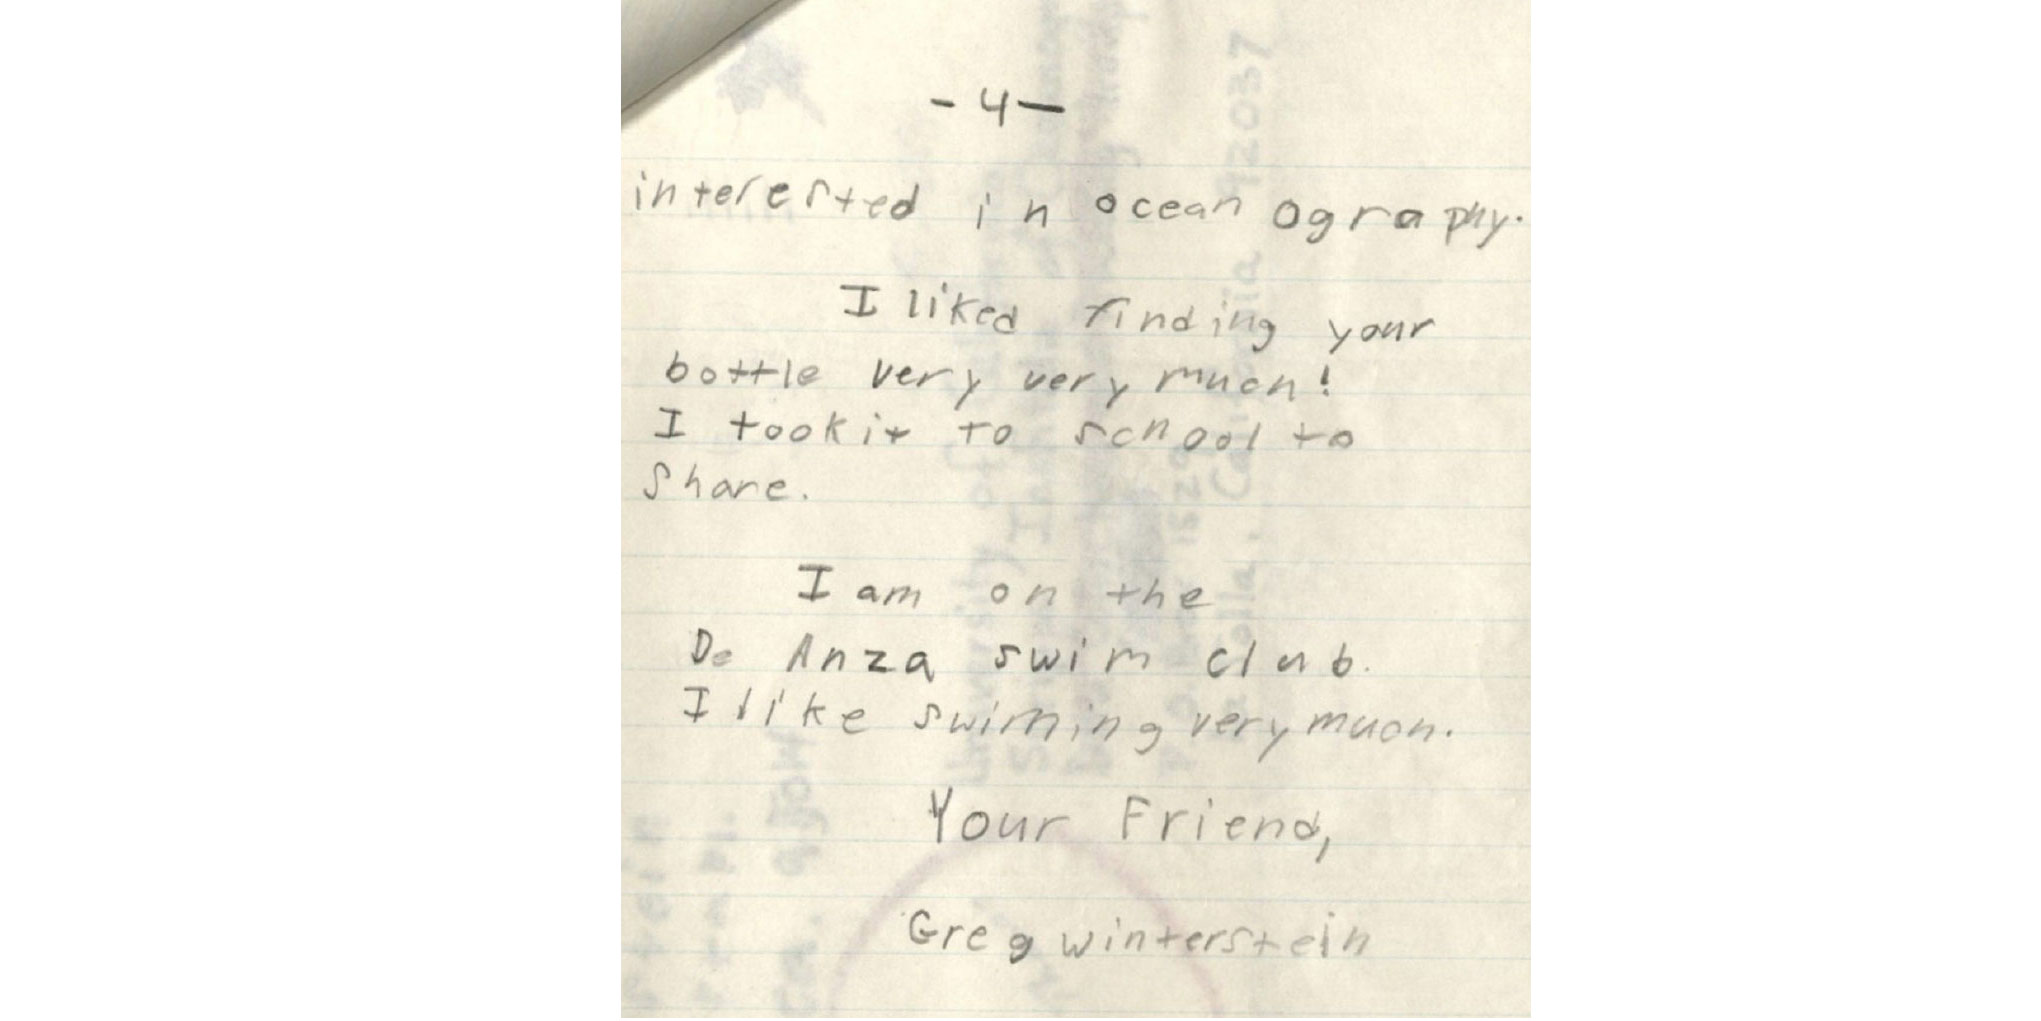 - 4 -
interested in oceanography.
I liked finding your
bottle very very much!
I took it to school to
share.
I am on the
De Anza swim club.
I like swiming very much.
Your Friend,
Greg winterstein